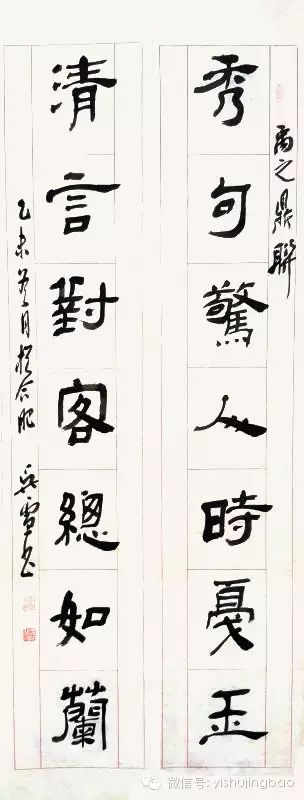 禹之鼎聯
秀句驚人時戛玉
清言對客總如蘭
乙未月於合肥 吳雪書
微信号: yishujingbao